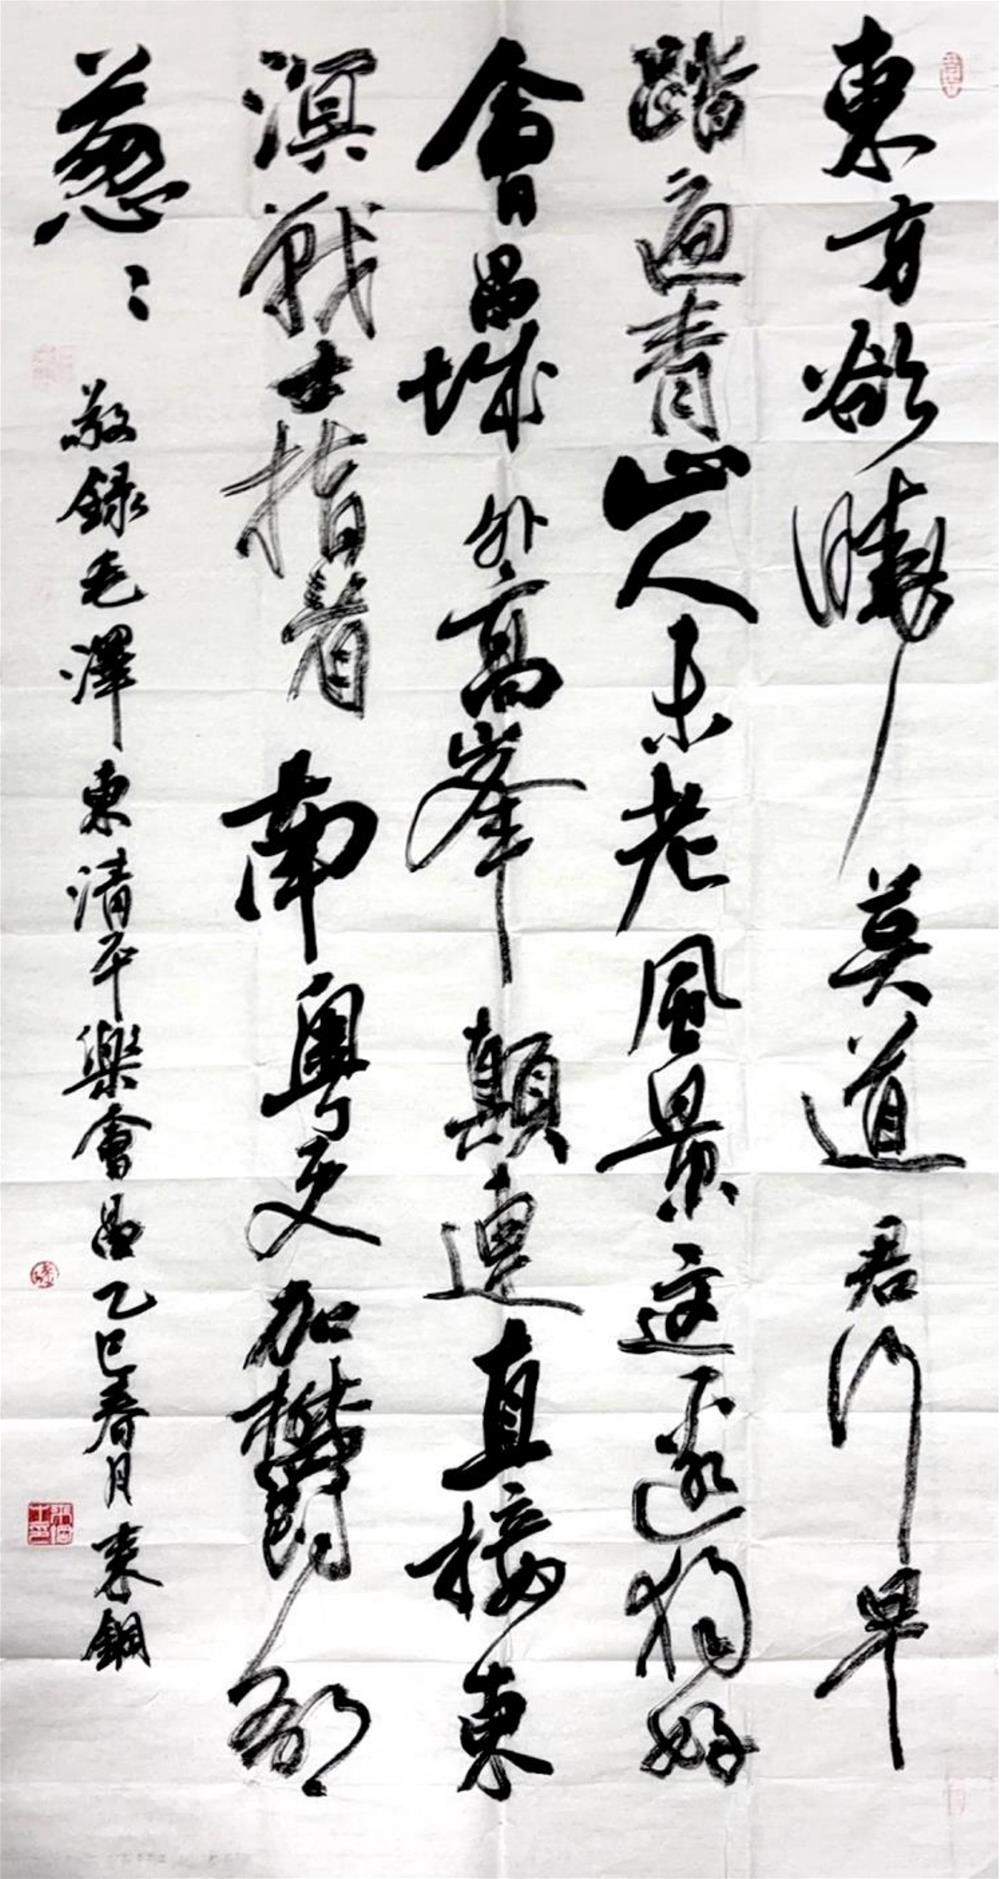 東方欲曉莫道君行早
踏遍青山人未老風景這邊獨好
會昌城外高峯顛連直接東
溟戰士指看南粤更加鬱郁
葱〻
敬録毛澤東清平樂會昌乙巳春月来